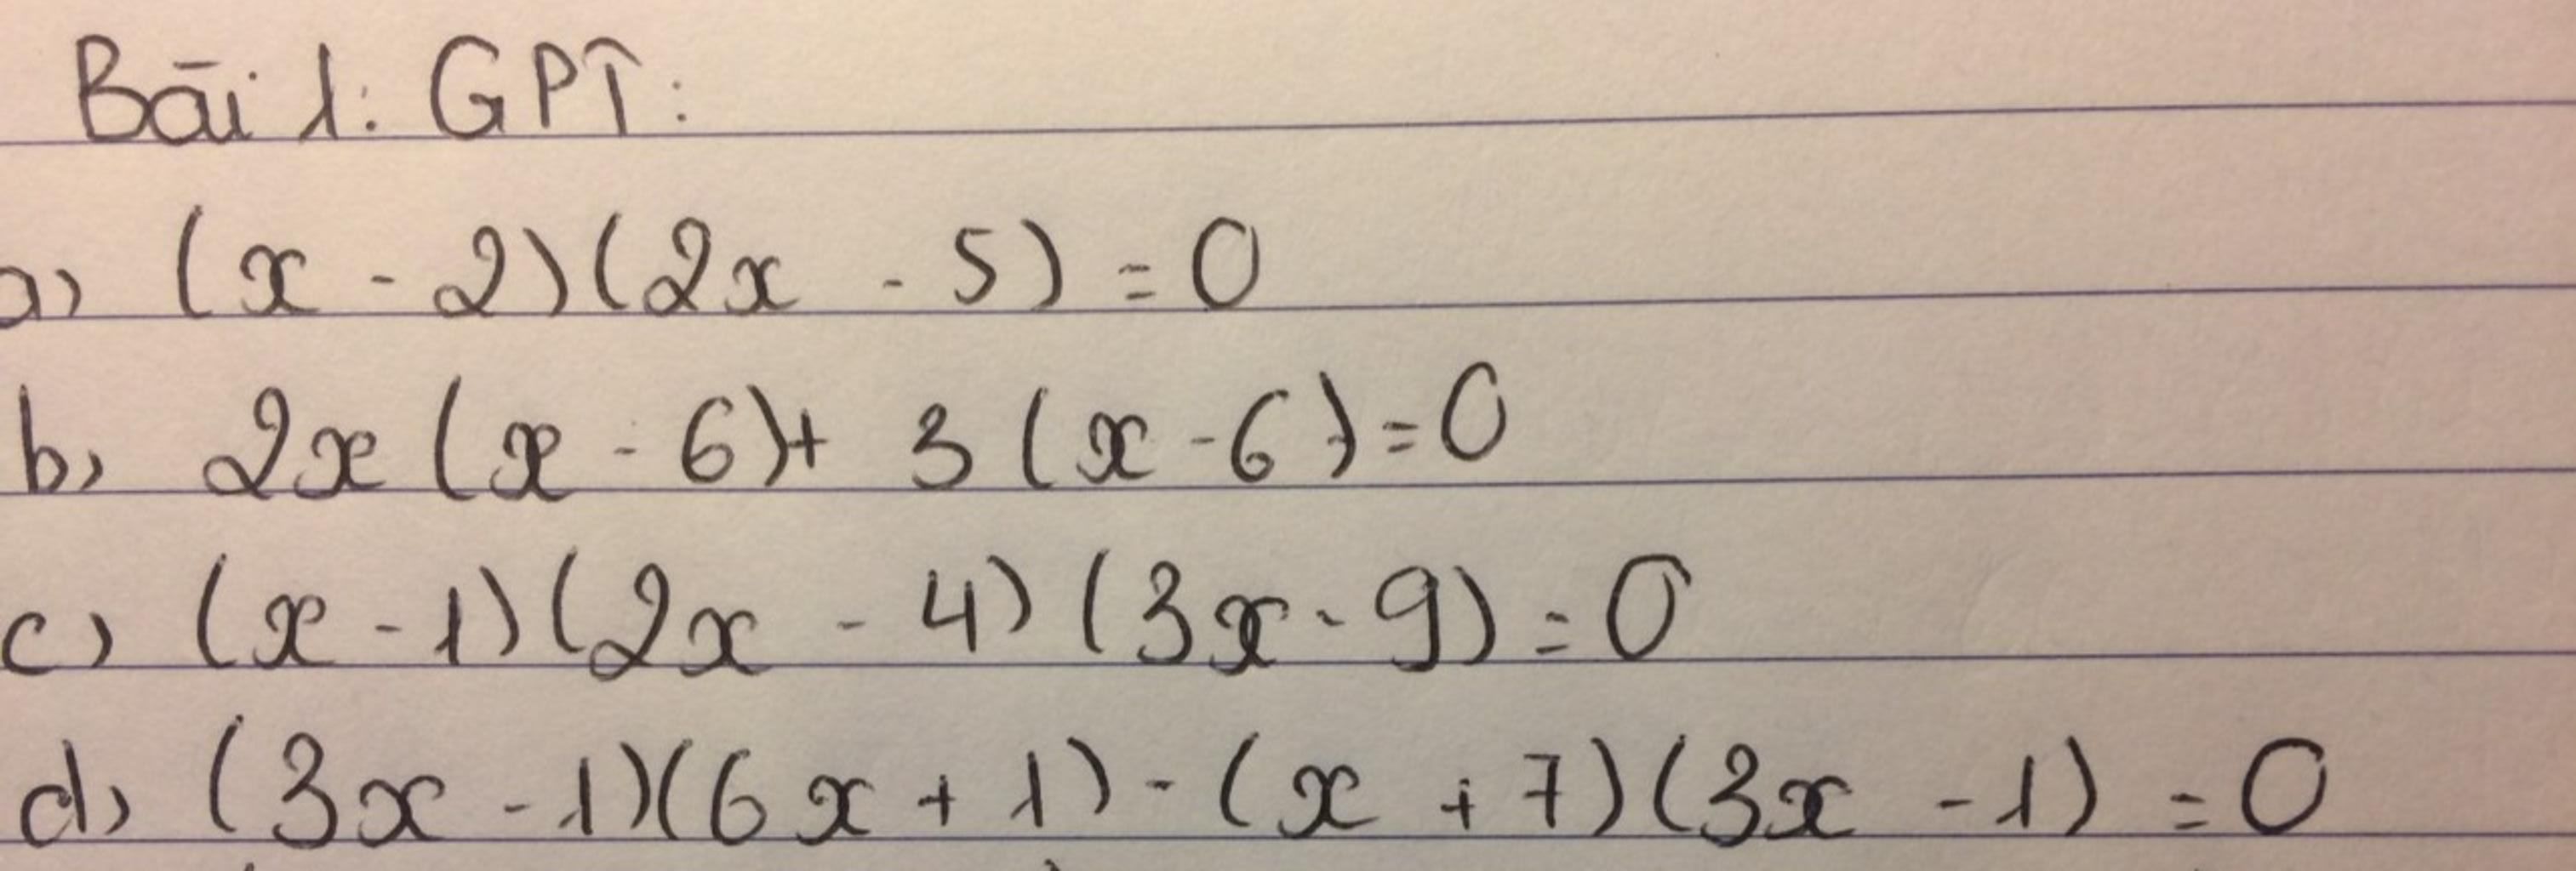 Bài 1: GPT:
a) (x - 2)(2x - 5) = 0
b) 2x(x - 6) + 3(x - 6) = 0
c) (x - 1)(2x - 4)(3x - 9) = 0
d) (3x - 1)(6x + 1) - (x + 7)(3x - 1) = 0